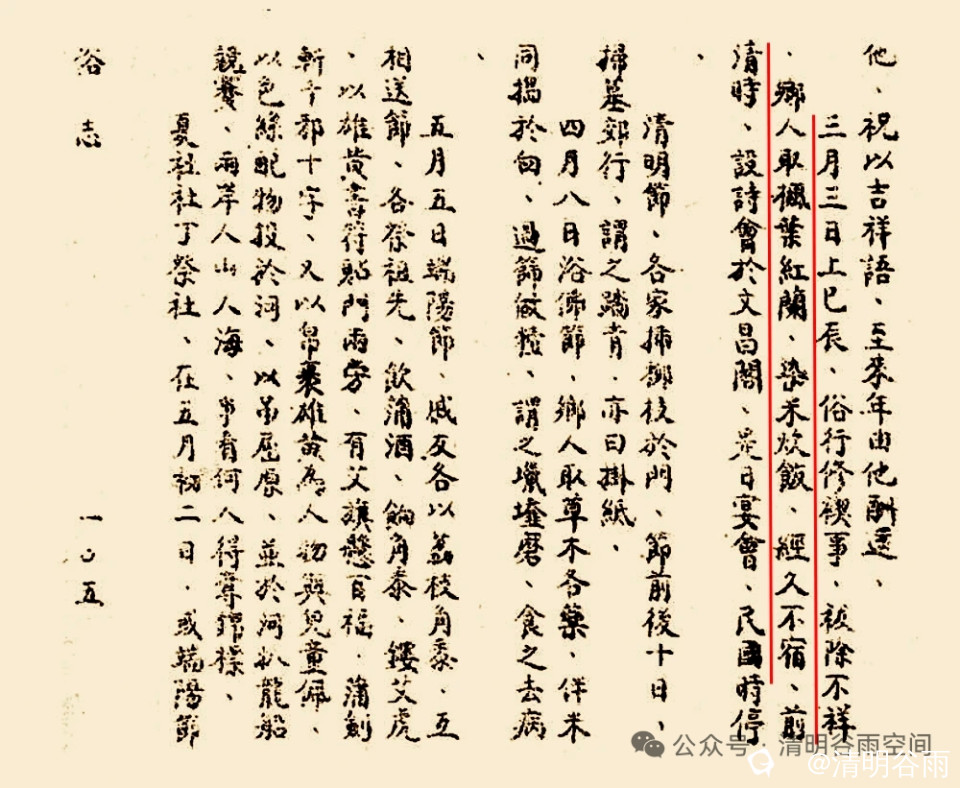 他、祝以吉祥語、至來年由他酬還、
三月三日上巳辰、俗行修禊事、祓除不祥
、鄉人取楓葉紅蘭、染米炊飯、經久不宿、前
清時、設詩會於文昌閣、是日宴會、民國時停
、
清明節、各家插柳枝於門、節前後十日、
掃墓郊行、謂之踏青、亦曰掛紙、
四月八日浴佛節、鄉人取草木各藥、伴米
同搗於臼、過篩做糍、謂之磨、食之去病
、
五月五日端陽節、戚友各以荔枝角黍、互
相送節、各祭祖先、飲蒲酒、餉角黍、鏤艾虎
、以雄黄書符貼門兩旁、有艾旗懸百福、蒲劍
斬千邪十字、又以帛裹雄黄為人物與兒童佩、
以色綵配物投於河、以弔屈原、並於河扒龍船
競賽、兩岸人山人海、爭看何人得奪錦標、
夏社社丁祭社、在五月初二日、或端陽節
俗志 一〇五
公众号·清明谷雨空间
@清明谷雨